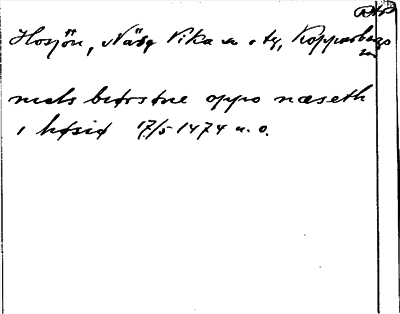 Hosjön, Näsg Vika sn o tg, Kopparbergs
ln
mels betostne oppo næseth
i hosio 17/5 1474 n. o.